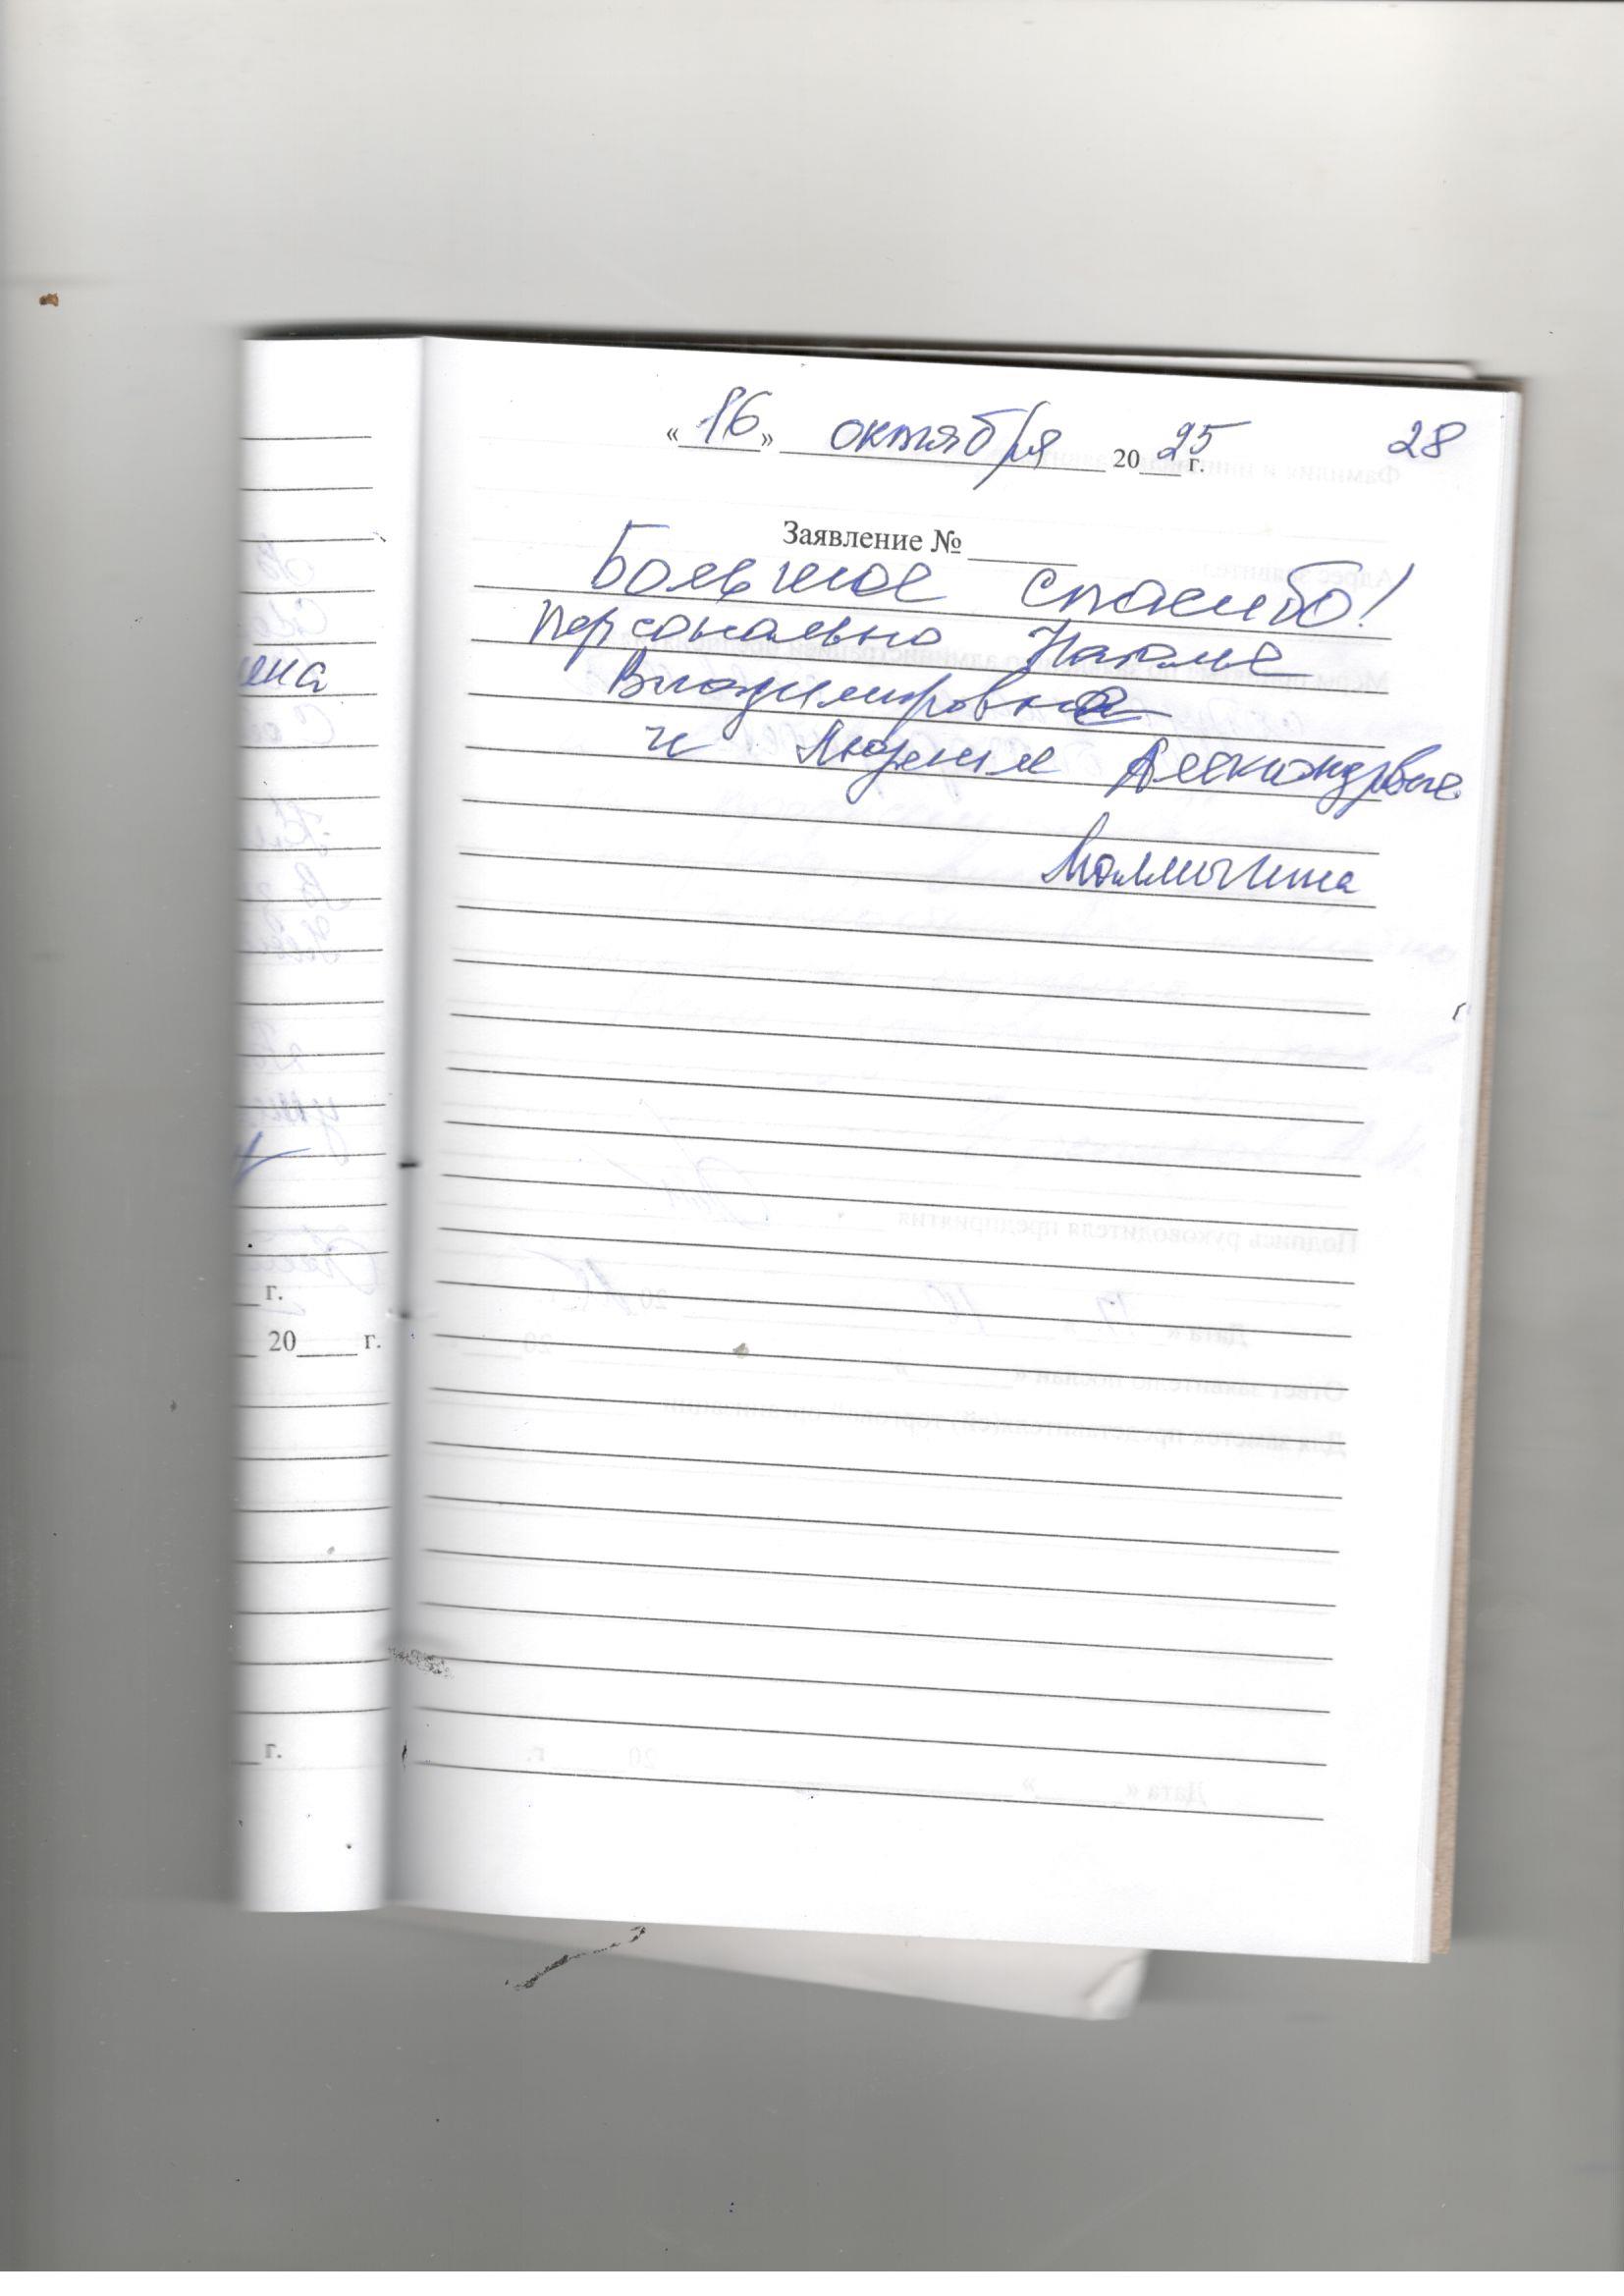 «16» октября 2025 г. 28
Заявление № ______
Большое спасибо!
персонально Наталье
Владимировне
и Людмиле Александровне
ена
г.
20____ г.
г.